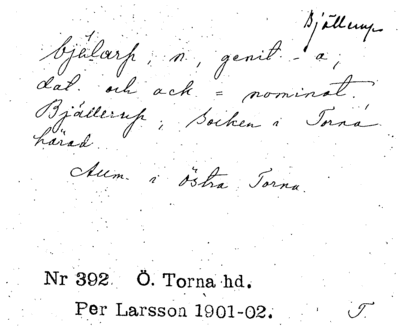 Bjällerup
bjälarp, n, genit -a,
dat. och ack = nominat.
Bjällerup, socken i Torna
härad.
Aum. i östra Torna.
Nr 392 Ö. Torna hd.
Per Larsson 1901-02. F.